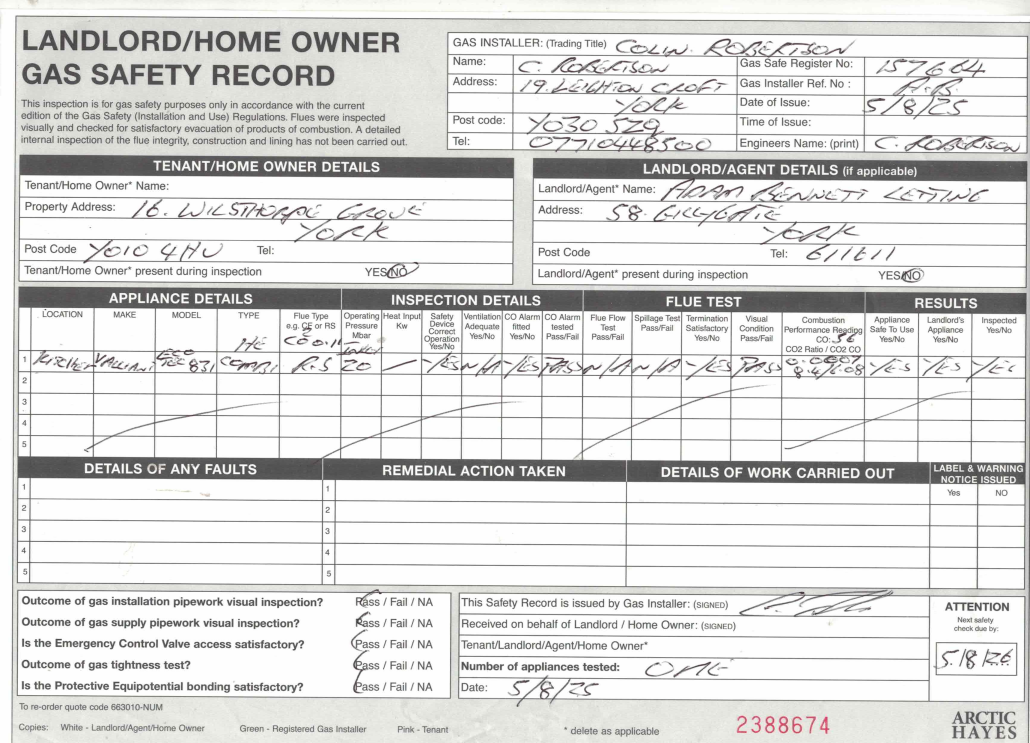 LANDLORD/HOME OWNER
GAS SAFETY RECORD
This inspection is for gas safety purposes only in accordance with the current
edition of the Gas Safety (Installation and Use) Regulations. Flues were inspected
visually and checked for satisfactory evacuation of products of combustion. A detailed
internal inspection of the flue integrity, construction and lining has not been carried out.
GAS INSTALLER: (Trading Title) COLIN. ROBERTSON
Name: C. ROBERTSON
Gas Safe Register No: 157664
Address: 19. LEIGHTON CROFT
Gas Installer Ref. No : A.B.
YORK
Date of Issue: 5/8/25
Post code: YO30 5ZQ
Time of Issue:
Tel: 07710448500
Engineers Name: (print) C. ROBERTSON
TENANT/HOME OWNER DETAILS
Tenant/Home Owner* Name:
Property Address: 16. WILSTHORPE GROVE
YORK
Post Code YO10 4HU Tel:
Tenant/Home Owner* present during inspection YES/NO
LANDLORD/AGENT DETAILS (if applicable)
Landlord/Agent* Name: ADAM BENNETT LETTING
Address: 58. GILLYGATE
YORK
Post Code Tel: 611611
Landlord/Agent* present during inspection YES/NO
APPLIANCE DETAILS INSPECTION DETAILS FLUE TEST RESULTS
LOCATION MAKE MODEL TYPE Flue Type e.g. CF or RS Operating Pressure Mbar Heat Input Kw Safety Device Correct Operation Yes/No Ventilation Adequate Yes/No CO Alarm fitted Yes/No CO Alarm tested Pass/Fail Flue Flow Test Pass/Fail Spillage Test Pass/Fail Termination Satisfactory Yes/No Visual Condition Pass/Fail Combustion Performance Reading CO: 56 CO2 Ratio / CO2 CO Appliance Safe To Use Yes/No Landlord's Appliance Yes/No Inspected Yes/No
HE
0.0007
1 KITCHEN VAILLANT ECO TEC 831 COMBI R.S 20 – YES N/A YES PASS N/A N/A YES PASS 8.4/6.08 YES YES YES
2
3
4
5
DETAILS OF ANY FAULTS REMEDIAL ACTION TAKEN DETAILS OF WORK CARRIED OUT LABEL & WARNING NOTICE ISSUED
Yes NO
1 1
2 2
3 3
4 4
5 5
Outcome of gas installation pipework visual inspection? Pass / Fail / NA
Outcome of gas supply pipework visual inspection? Pass / Fail / NA
Is the Emergency Control Valve access satisfactory? Pass / Fail / NA
Outcome of gas tightness test? Pass / Fail / NA
Is the Protective Equipotential bonding satisfactory? Pass / Fail / NA
This Safety Record is issued by Gas Installer: (SIGNED)
Received on behalf of Landlord / Home Owner: (SIGNED)
Tenant/Landlord/Agent/Home Owner*
Number of appliances tested: ONE
Date: 5/8/25
ATTENTION
Next safety
check due by:
5/8/26
To re-order quote code 663010-NUM
Copies: White - Landlord/Agent/Home Owner Green - Registered Gas Installer Pink - Tenant * delete as applicable 2388674
ARCTIC
HAYES